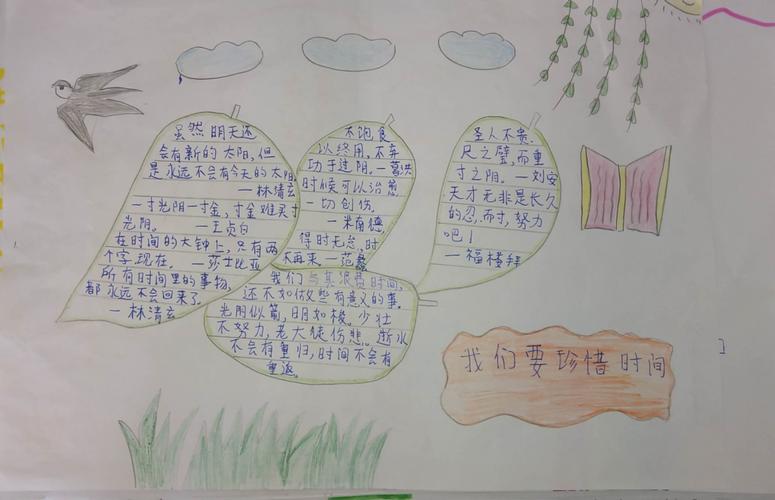 虽然明天还
会有新的太阳,但
是永远不会有今天的太阳。
—林清玄
一寸光阴一寸金,寸金难买寸
光阴。 —王贞白
在时间的大钟上,只有两
个字现在。—莎士比亚
所有时间里的事物,
都永远不会回来了。
—林清玄
不饱食
以终用,不弃
功于过阴。—葛洪
时候可以治愈
一切创伤。
—米南德
得时无怠,时
不再来—范蠡
圣人不贵
尺之璧,而重
寸之阴。—刘安
天才无非是长久
的忍,而寸,努力
吧!
—福楼拜
我们与其浪费时间,
还不如做些有意义的事。
光阴似箭,明如梭。少壮
不努力,老大徒伤悲。逝水
不会有重归,时间不会有
重返。
我们要珍惜时间